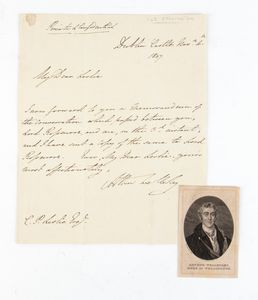 Private & Confidential
Dublin Castle Nov.r 4.th
1807
My Dear Leslie
I now forward to you a Memorandum of
the conversation which passed between you,
Lord Rossmore and me, on the 3.d instant;
and I have sent a copy of the same to Lord
Rossmore. Ever, My Dear Leslie, yours
most affectionately,
Arthur Wellesley
C. P. Leslie Esq.r
ARTHUR WELLESLEY,
DUKE OF WELLINGTON.